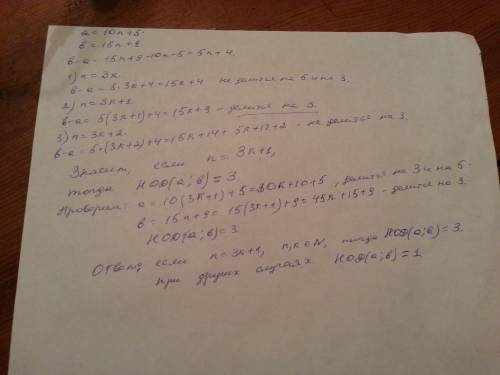 a = 10n + 5.
b = 15n + 9
b-a = 15n+9-10n-5 = 5n+4.
1) n = 3k.
b-a = 5·3k+4 = 15k+4 не делится на 5 и на 3.
2) n = 3k+1
b-a = 5(3k+1)+4 = 15k+9 - делится на 3.
3) n = 3k+2.
b-a = 5·(3k+2)+4 = 15k+14 - не делится на 3.
Значит, если n = 3k+1,
тогда НОД(a;b) = 3.
Проверим: a = 10(3k+1)+5 = 30k+10+5, делится на 3 и на 5.
b = 15n+9 = 15(3k+1)+9 = 45k+15+9 - делится на 3.
НОД(a;b) = 3
Ответ: если n = 3k+1, n,k∈N, тогда НОД(a;b) = 3.
при других случаях НОД(a;b) = 1